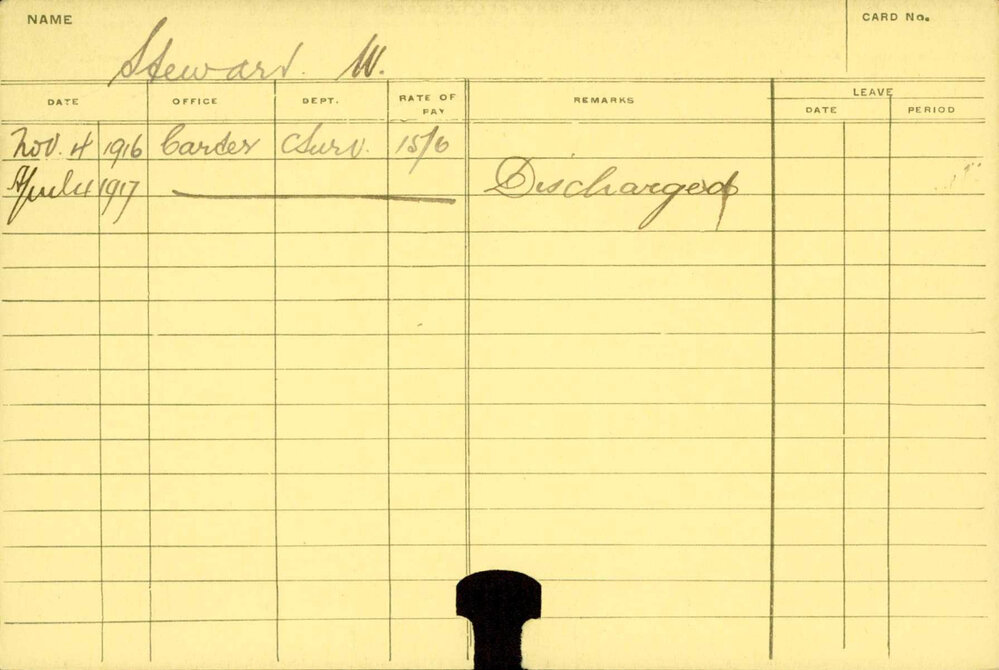 NAME
CARD No.
Steward. W.
DATE OFFICE DEPT. RATE OF PAY REMARKS LEAVE
DATE PERIOD
Nov. 4 1916 Carter Surv. 15/6
April 4 1917 Discharged